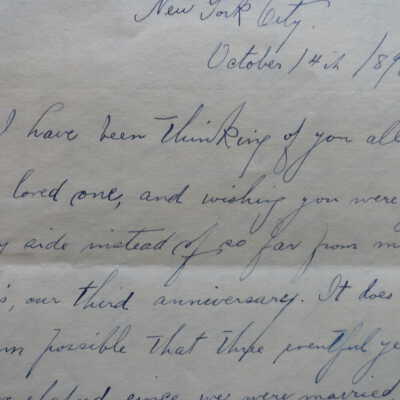 New York City.
October 14th 189
I have been thinking of you all
loved one, and wishing you were
side instead of so far from m
s, our third anniversary. It does
m possible that three eventful ye
elapsed since we were married